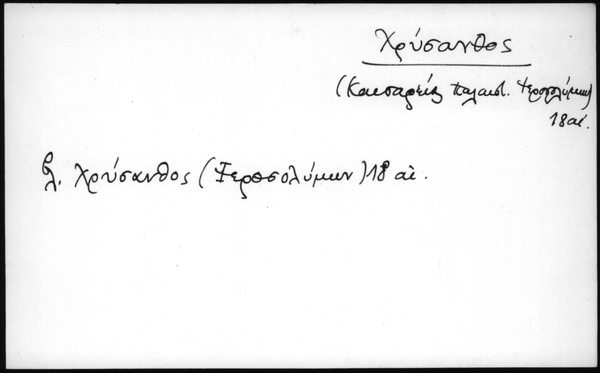 Χρύσανθος
(Καισαρείας Παλαιστ. Ἱεροσολύμων)
18 αἰ.
βλ. Χρύσανθος (Ἱεροσολύμων) 18 αἰ.